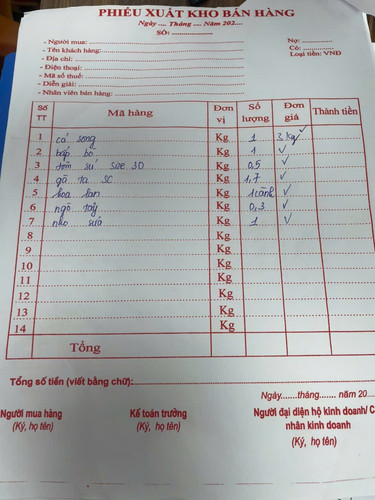 PHIẾU XUẤT KHO BÁN HÀNG
Ngày .... Tháng .... Năm 202....
SỐ: ....................
- Người mua: Nợ: ............
- Tên khách hàng: Có: ............
- Địa chỉ: Loại tiền: VNĐ
- Điện thoại:
- Mã số thuế:
- Diễn giải:
- Nhân viên bán hàng:
Số TT Mã hàng Đơn vị Số lượng Đơn giá Thành tiền
1 cá song Kg 1 2kg ✓
2 bắp bò Kg 1 ✓
3 tôm sú size 30 Kg 0,5 ✓
4 gà ta SC Kg 1,7 ✓
5 hoa lan Kg 1 cành ✓
6 ngò tây Kg 0,3 ✓
7 nho sữa Kg 1 ✓
8 Kg
9 Kg
10 Kg
11 Kg
12 Kg
13 Kg
14 Kg
Tổng
Tổng số tiền (viết bằng chữ):
Ngày.......tháng....... năm 20....
Người mua hàng Kế toán trưởng Người đại diện hộ kinh doanh/ C
(Ký, họ tên) (Ký, họ tên) nhân kinh doanh
(Ký, họ tên)